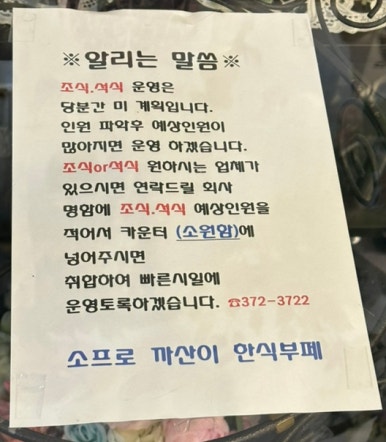 ※알리는 말씀※
조식.석식 운영은
당분간 미 계획입니다.
인원 파악후 예상인원이
많아지면 운영 하겠습니다.
조식or석식 원하시는 업체가
있으시면 연락드릴 회사
명함에 조식.석식 예상인원을
적어서 카운터 (소원함)에
넣어주시면
취합하여 빠른시일에
운영토록하겠습니다. ☎372-3722
소프로 까산이 한식부페